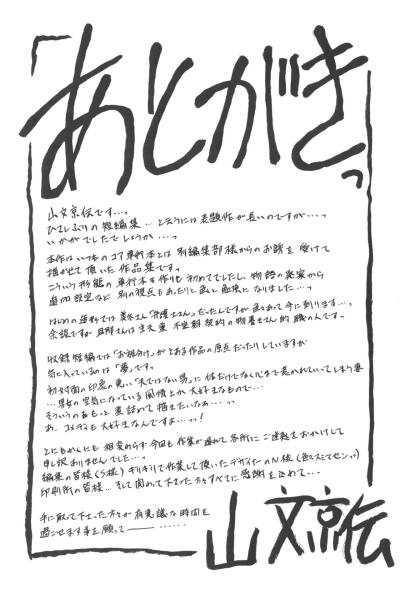 「あとがきっ
山文京伝です…っ
ひさしぶりの短編集… と云うには表題作が長いのですが…っ
いかがでしたでしょうか…っ
本作はいつものコア単行本とは 別編集部様からのお話を受けて
描かせて頂いた作品集ですっ
こういう形態の単行本を作りも初めてでしたし、物語の発案から
追加設定など 別の視点もあったりと色々勉強になりました…っ
はじめの段階では美冬さん「弁護士さん」だったんですが色々あって今に到ります…っ
余談ですが旦那さんは
収録短編では「お裾分け」がとある作品の原点だったりしていますが
気に入っているのは「夢」ですっ
初対面の印象の悪い「夫ではない男」に体だけでなく心まで惹かれていってしまう妻
…男女の空気になっている関係とか大好きなもので…
そういうのをもっと煮詰めて描きたいなぁ…っ
あ、コメディも大好きなんですよ…っ!
とにもかくにも 相変わらず今回も作業が遅れて各所にご迷惑をおかけして
申し訳ありませんでした…っ
編集の皆様(5様)ギリギリで作業して頂いたデザイナーのN様(色々スミマセンっ)
印刷所の皆様… そして関わって下さった方々すべてに感謝を込めて…
手に取って下さった方々が有意義な時間を
過ごせます事を願って――……
山文京伝